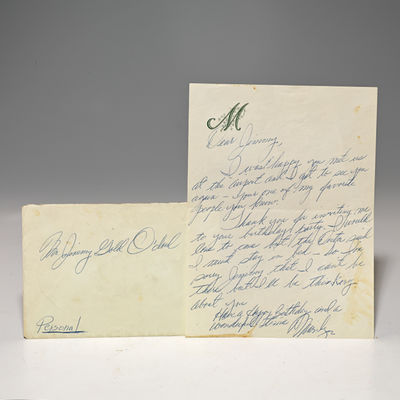 Mr. Jimmy
Personal
M
Dear Jimmy,
I was happy you met us
at the airport and I got to see you
again - your one of my favorite
people you know.
Thank you for inviting me
to your birthday party. I would
love to come but the Doctor said
I must stay in bed - so I'm
sorry Jimmy that I can't be
there but I'll be thinking
about you
Have a Happy Birthday and a
wonderful time